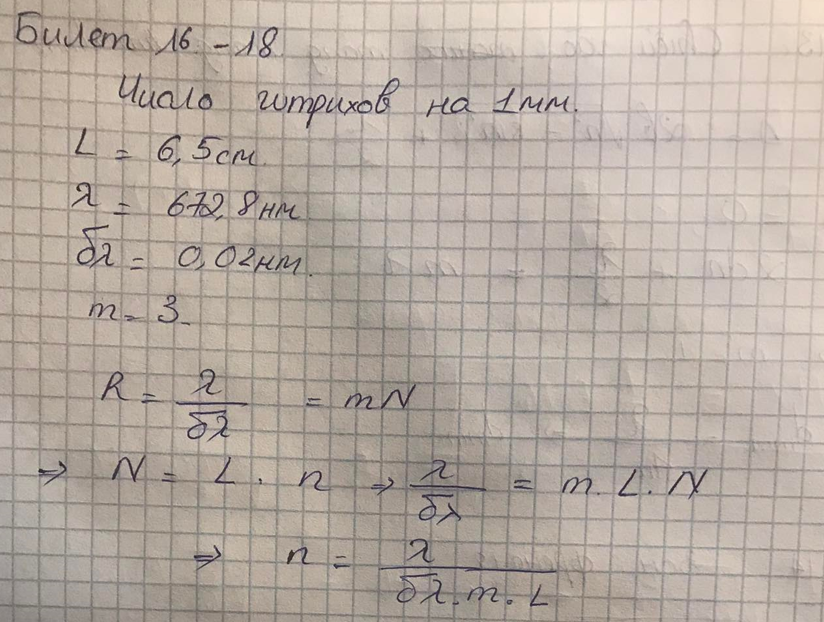 Билет 16 - 18.
Число штрихов на 1мм.
L = 6,5см
λ = 672,8нм
δλ = 0,02нм.
m = 3
R = λ/δλ = mN
⇒ N = L · n ⇒ λ/δλ = m · L · N
⇒ n = λ/(δλ · m · L)